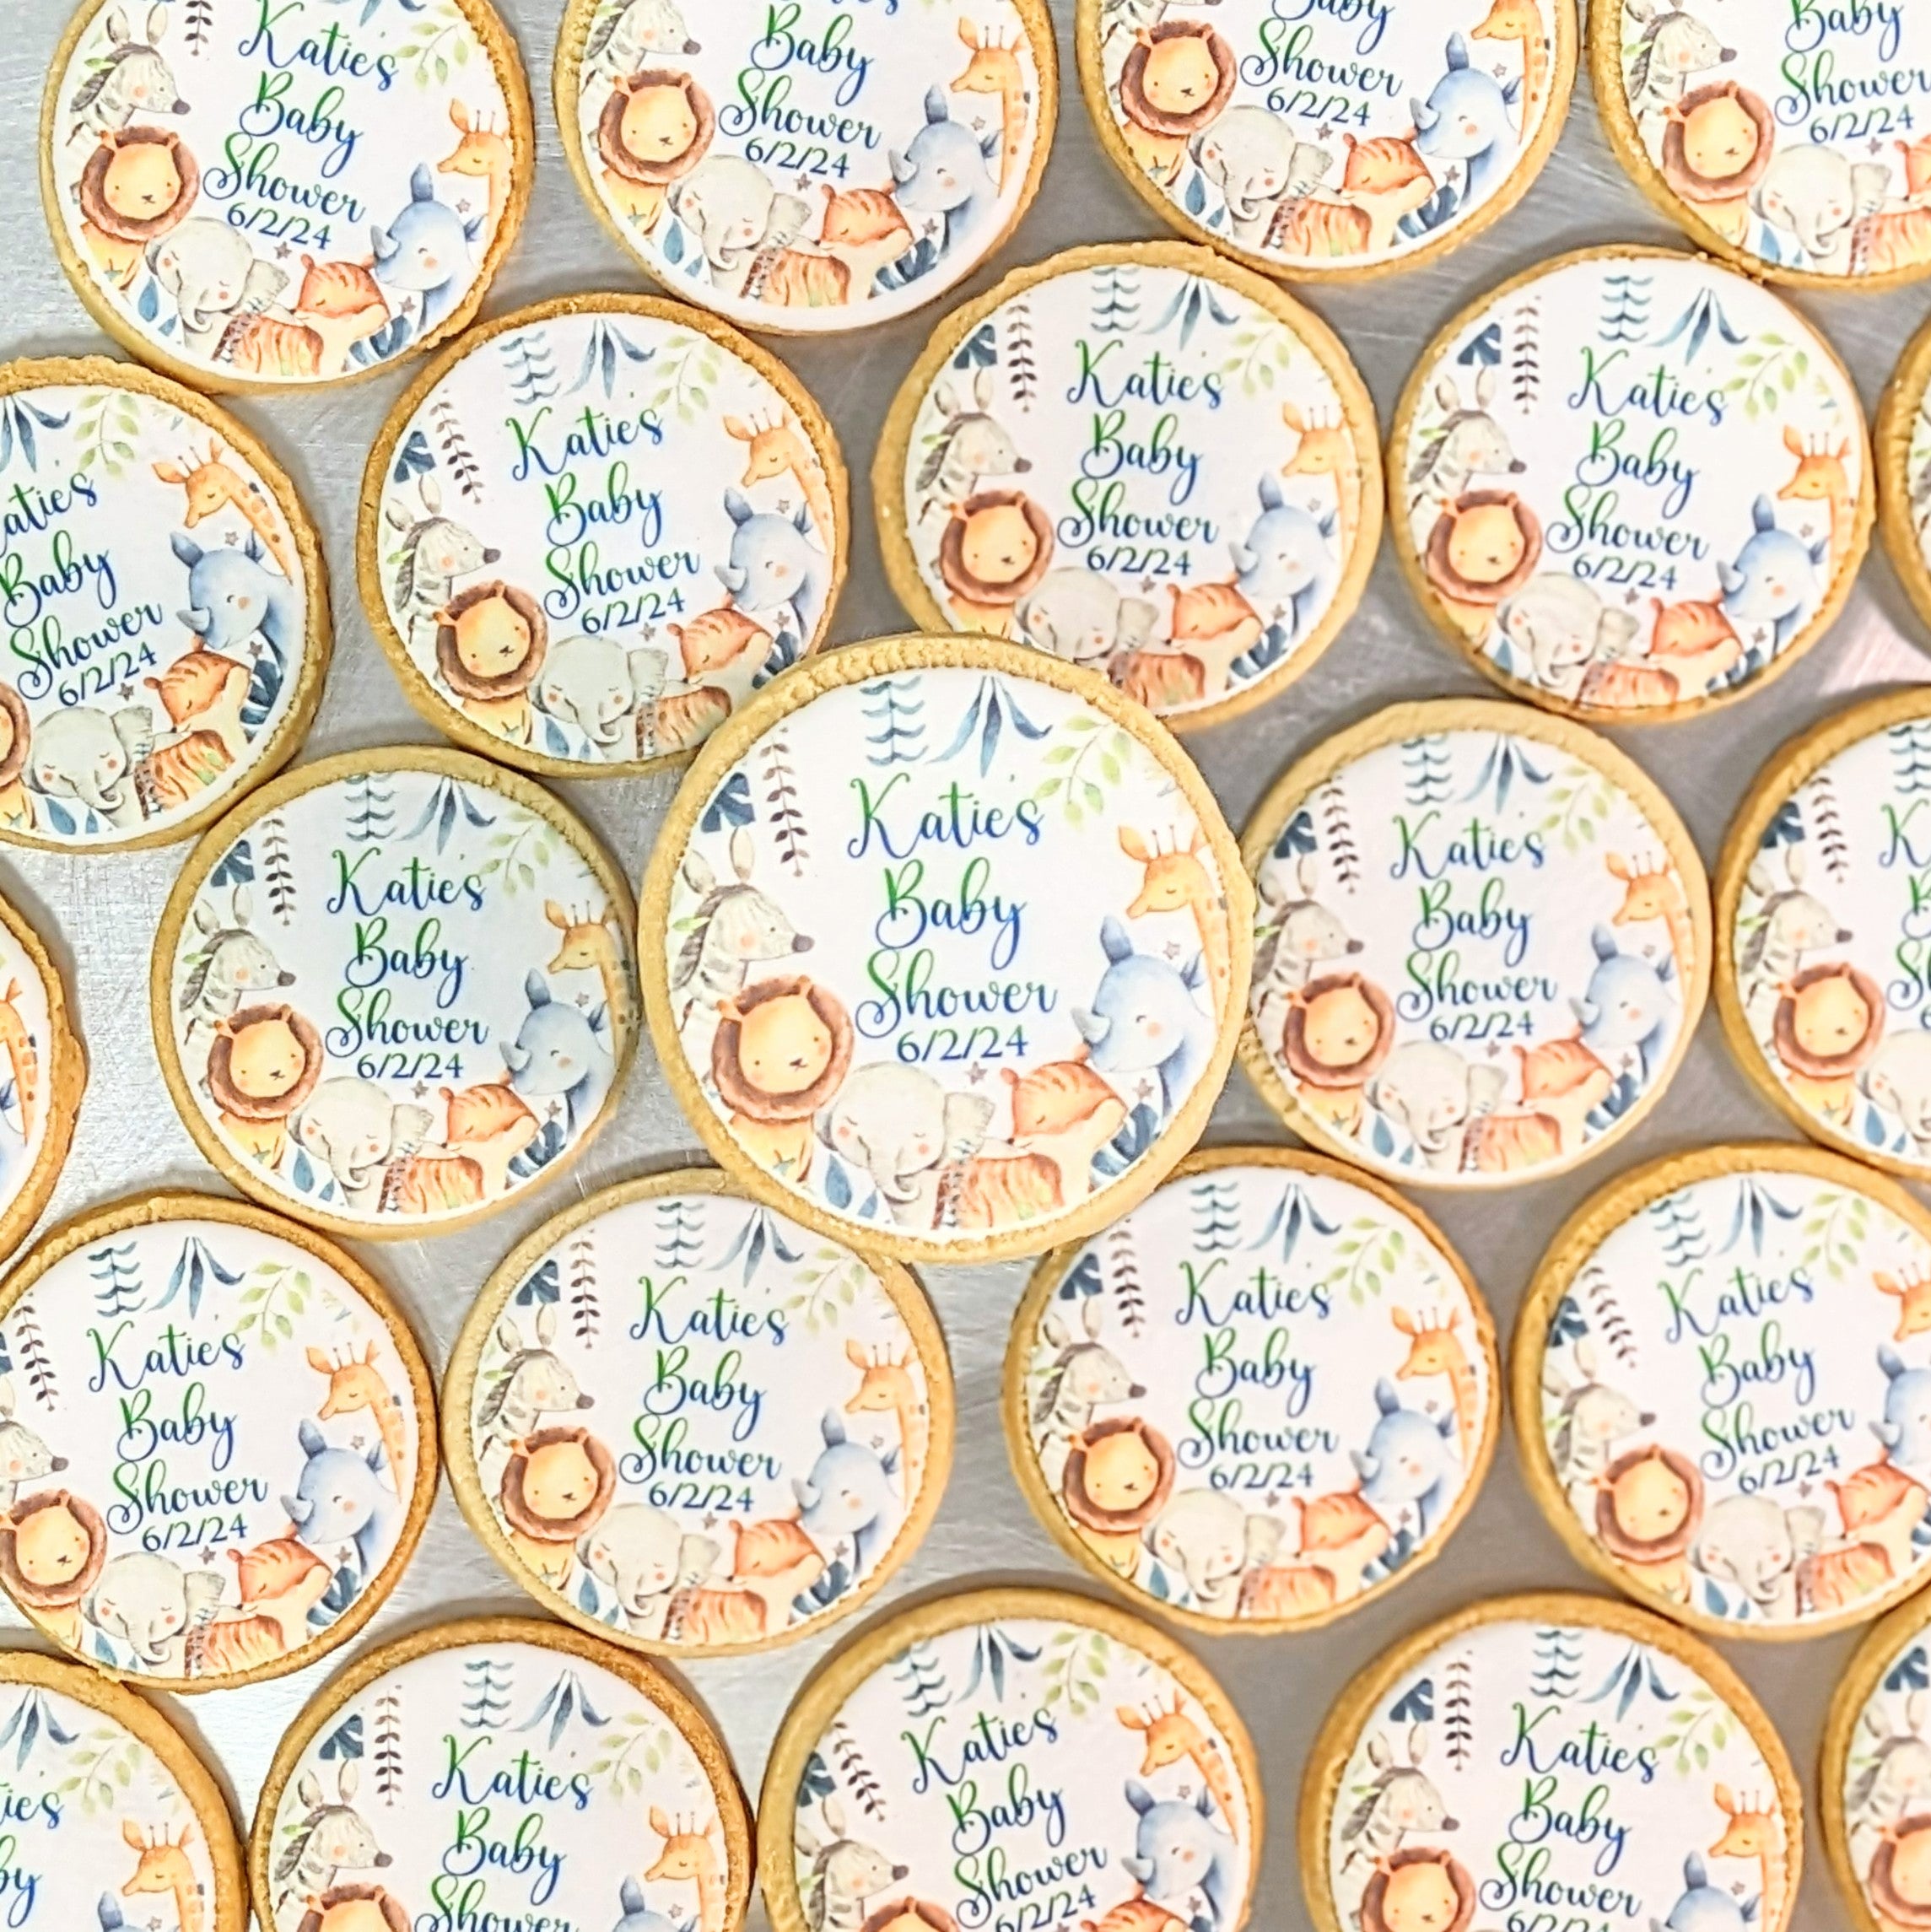 Katie's
Baby
Shower
6/2/24
Baby
Shower
6/2/24
Baby
Shower
6/2/24
Baby
Shower
6/2/24
Katie's
Baby
Shower
6/2/24
Katie's
Baby
Shower
6/2/24
Katie's
Baby
Shower
6/2/24
aties
Baby
Shower
6/2/24
Katie's
Baby
Shower
6/2/24
Katie's
Baby
Shower
6/2/24
Katie's
Baby
Shower
6/2/24
Katie's
Baby
Shower
6/2/24
Katie's
Baby
Shower
6/2/24
Katie's
Baby
Shower
6/2/24
Katie's
Baby
Shower
6/2/24
Katie's
Baby
Shower
6/2/24
Katie's
Baby
Shower
Katie's
Baby
Shower
6/2/24
Katie's
Baby
Shower
6/2/24